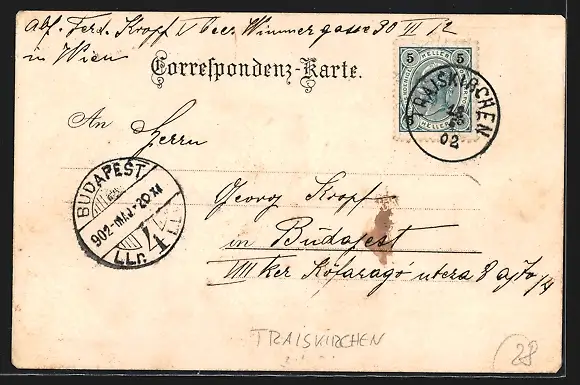 Abs. Ferd. Kropf V beer Wimmergasse 30 III 12
in Wien
Correspondenz-Karte.
5 5
HELLER HELLER
TRAISKIRCHEN
02
An Herrn
BUDAPEST
902-MAJ-20
4
LLr.
Georg Kropf
in Budapest
VIII ker Kőfaragó utcza 8 ajtó
TRAISKIRCHEN
28